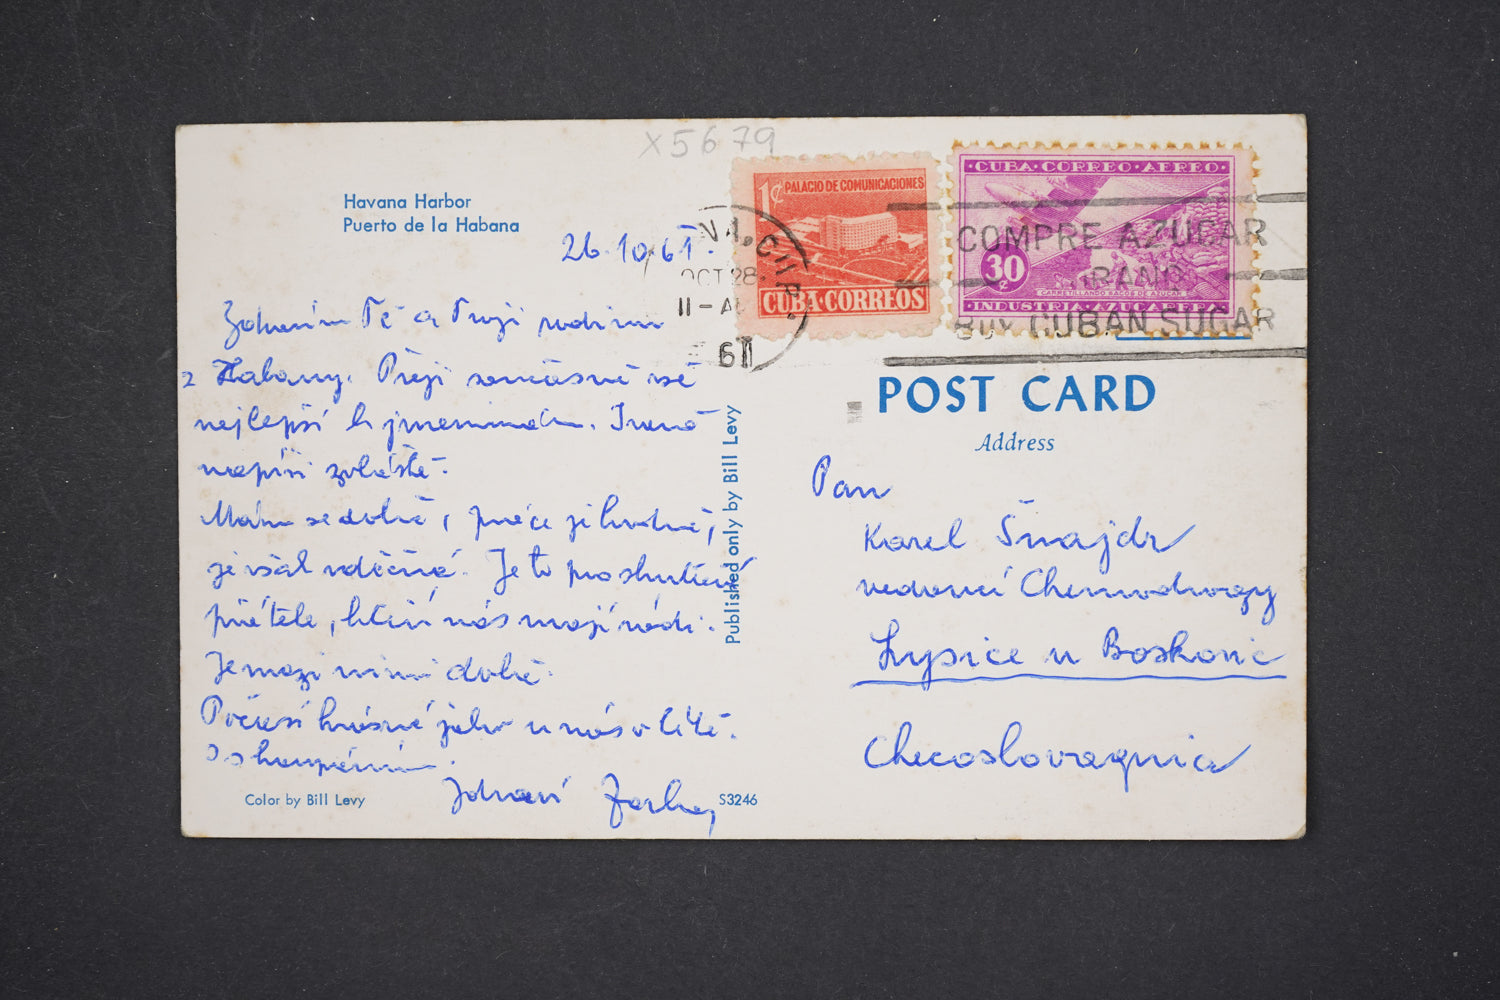 X5679
Havana Harbor
Puerto de la Habana
26.10.61.
Zdravím Tě a Tvoji rodinu
z Habany. Přeji současně vše
nejlepší k jmeninám. Ivaně
napíši zvláště.
Mám se dobře, práce je hodně,
je však vděčná. Je to pro skutečné
přátele, kteří nás mají rádi.
Je mezi nimi dobře.
Počasí krásné jako u nás v létě.
S koupáním.
Zdraví
Color by Bill Levy
S3246
Published only by Bill Levy
1¢ PALACIO DE COMUNICACIONES
CUBA·CORREOS
·CUBA·CORREO·AEREO·
30¢
CARRETILLANDO SACOS DE AZUCAR
·INDUSTRIA
OCT 28
11-A
61
COMPRE AZUCAR
BUY CUBAN SUGAR
POST CARD
Address
Pan
Karel Šnajdr
vedoucí Chemodrogy
Lysice u Boskovic
Checoslovaquia